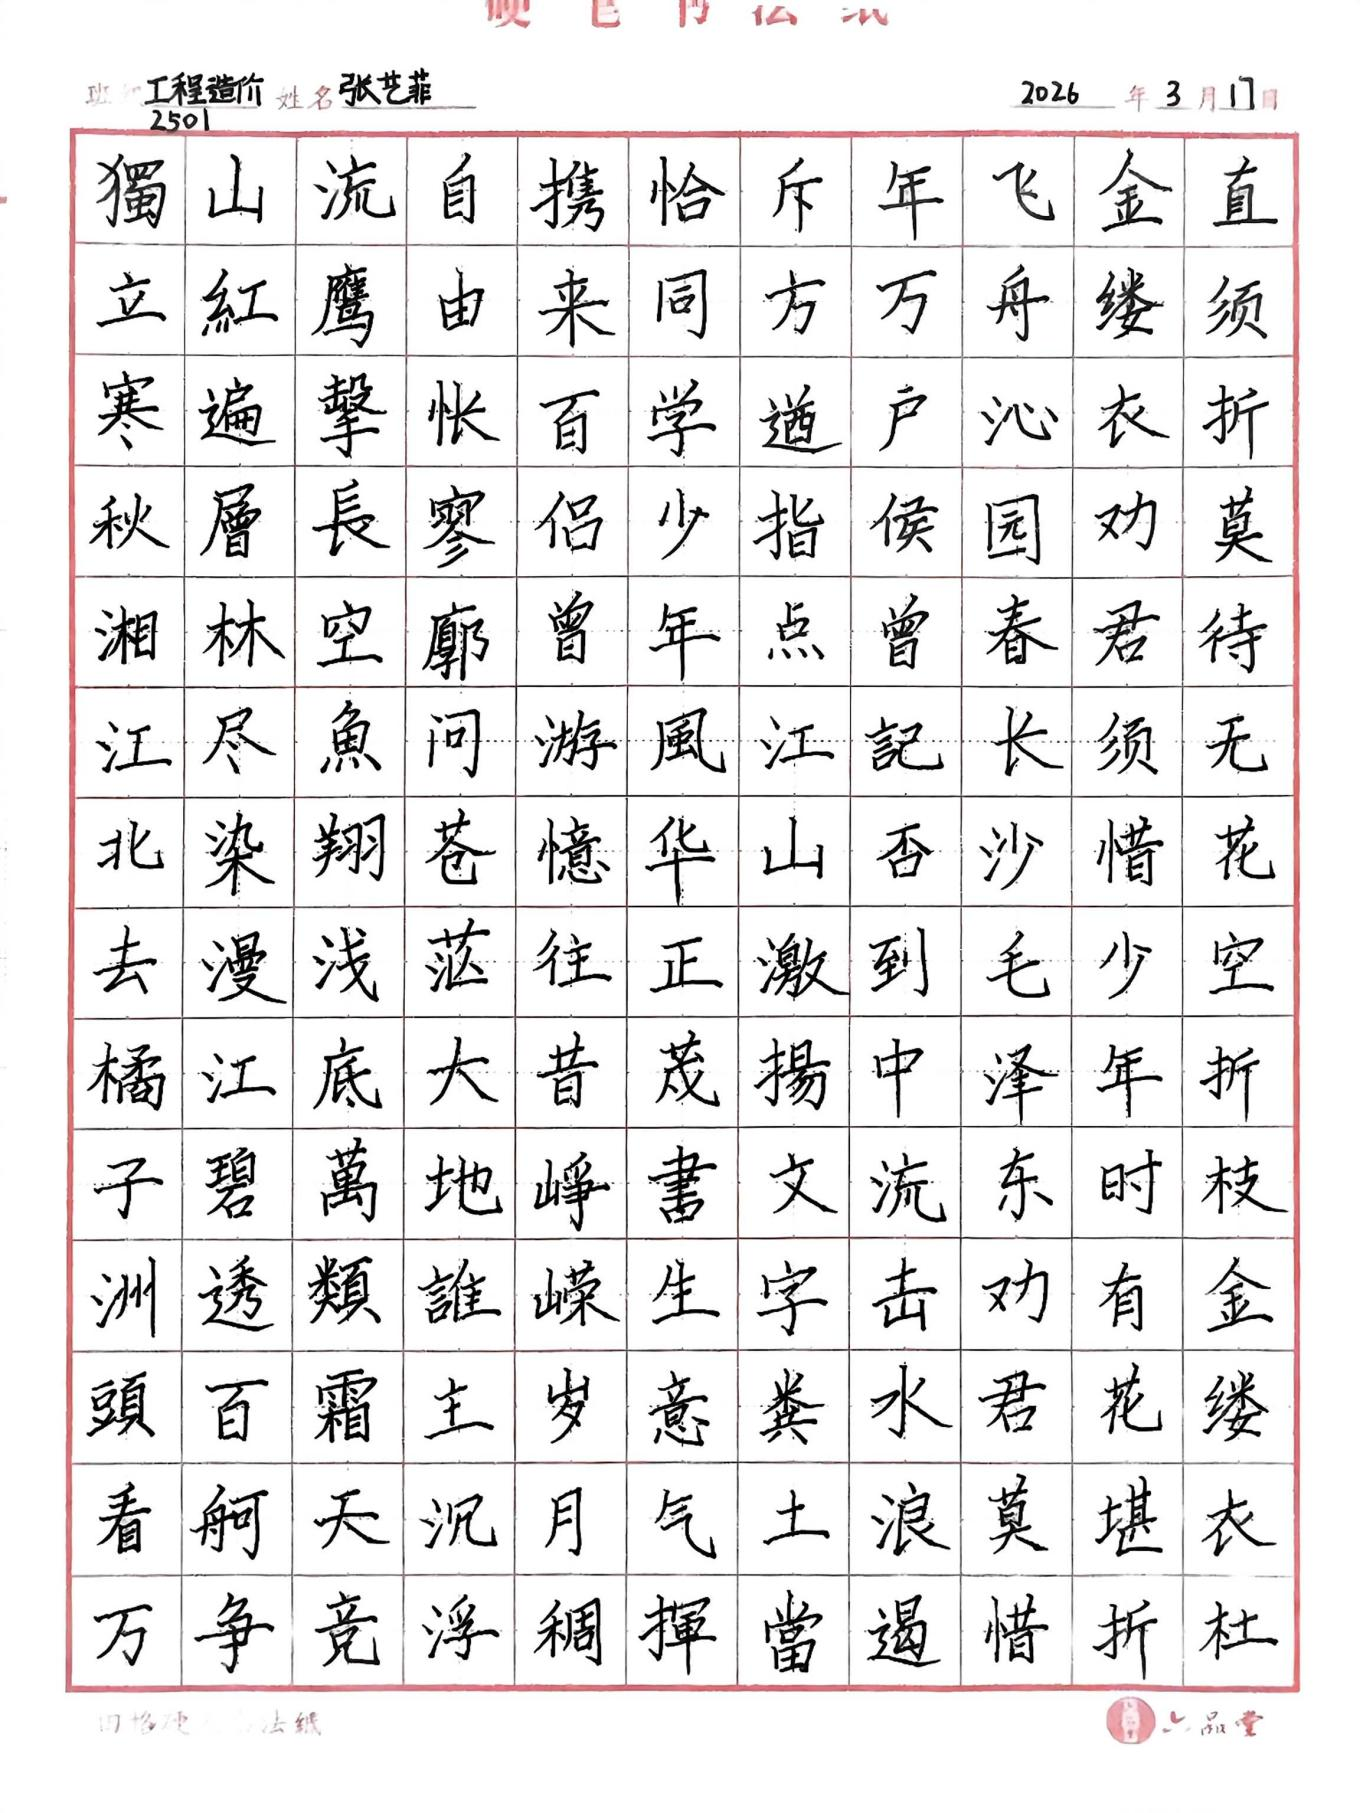 硬笔书法纸
班级 工程造价 2501 姓名 张艺菲 2026 年 3 月 17 日
獨立寒秋湘江北去橘子洲頭看万
山紅遍層林尽染漫江碧透百舸争
流鹰擊長空魚翔浅底萬類霜天竞
自由怅寥廓问苍茫大地誰主沉浮
携来百侣曾游憶往昔峥嵘岁月稠
恰同学少年風华正茂書生意气揮
斥方遒指点江山激揚文字粪土當
年万户侯曾記否到中流击水浪遏
飞舟沁园春长沙毛泽东劝君莫惜
金缕衣劝君须惜少年时有花堪折
直须折莫待无花空折枝金缕衣杜
田格硬笔书法纸
六品堂